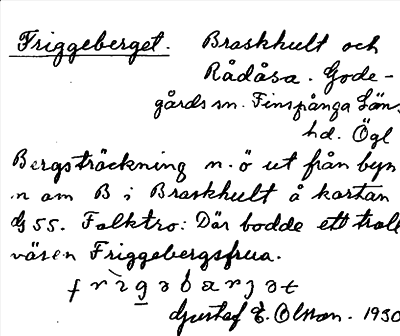 Friggeberget. Braskhult och
Rådåsa. Gode-
gårds sn. Finspånga Läns
hd. Ögl
Bergsträckning n. ö ut från byn
n om B i Braskhult å kartan
G 55. Folktro: Där bodde ett troll
väsen Friggebergsfrua.
Gustaf E. Olsson. 1930